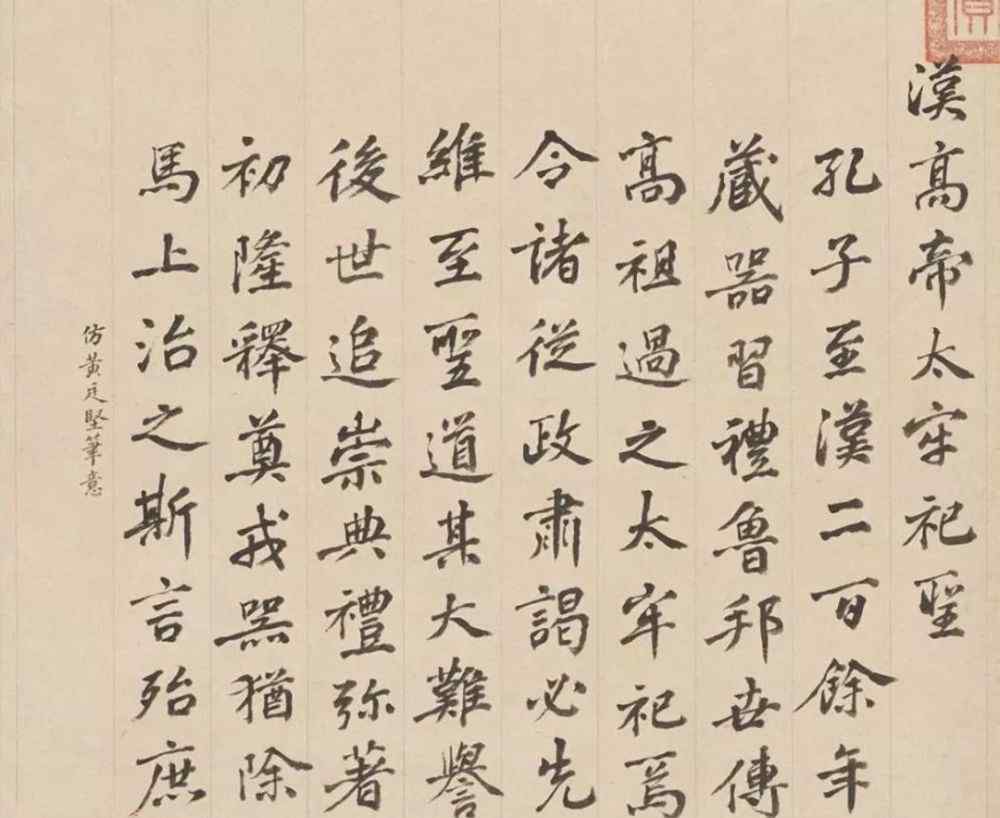 漢高帝太牢祀聖
孔子至漢二百餘年
藏器習禮魯邦世傳
高祖過之太牢祀焉
令諸從政肅謁必先
維至聖道其大難譽
後世追崇典禮彌著
初隆釋奠戎器猶除
馬上治之斯言殆庶
仿黃庭堅筆意